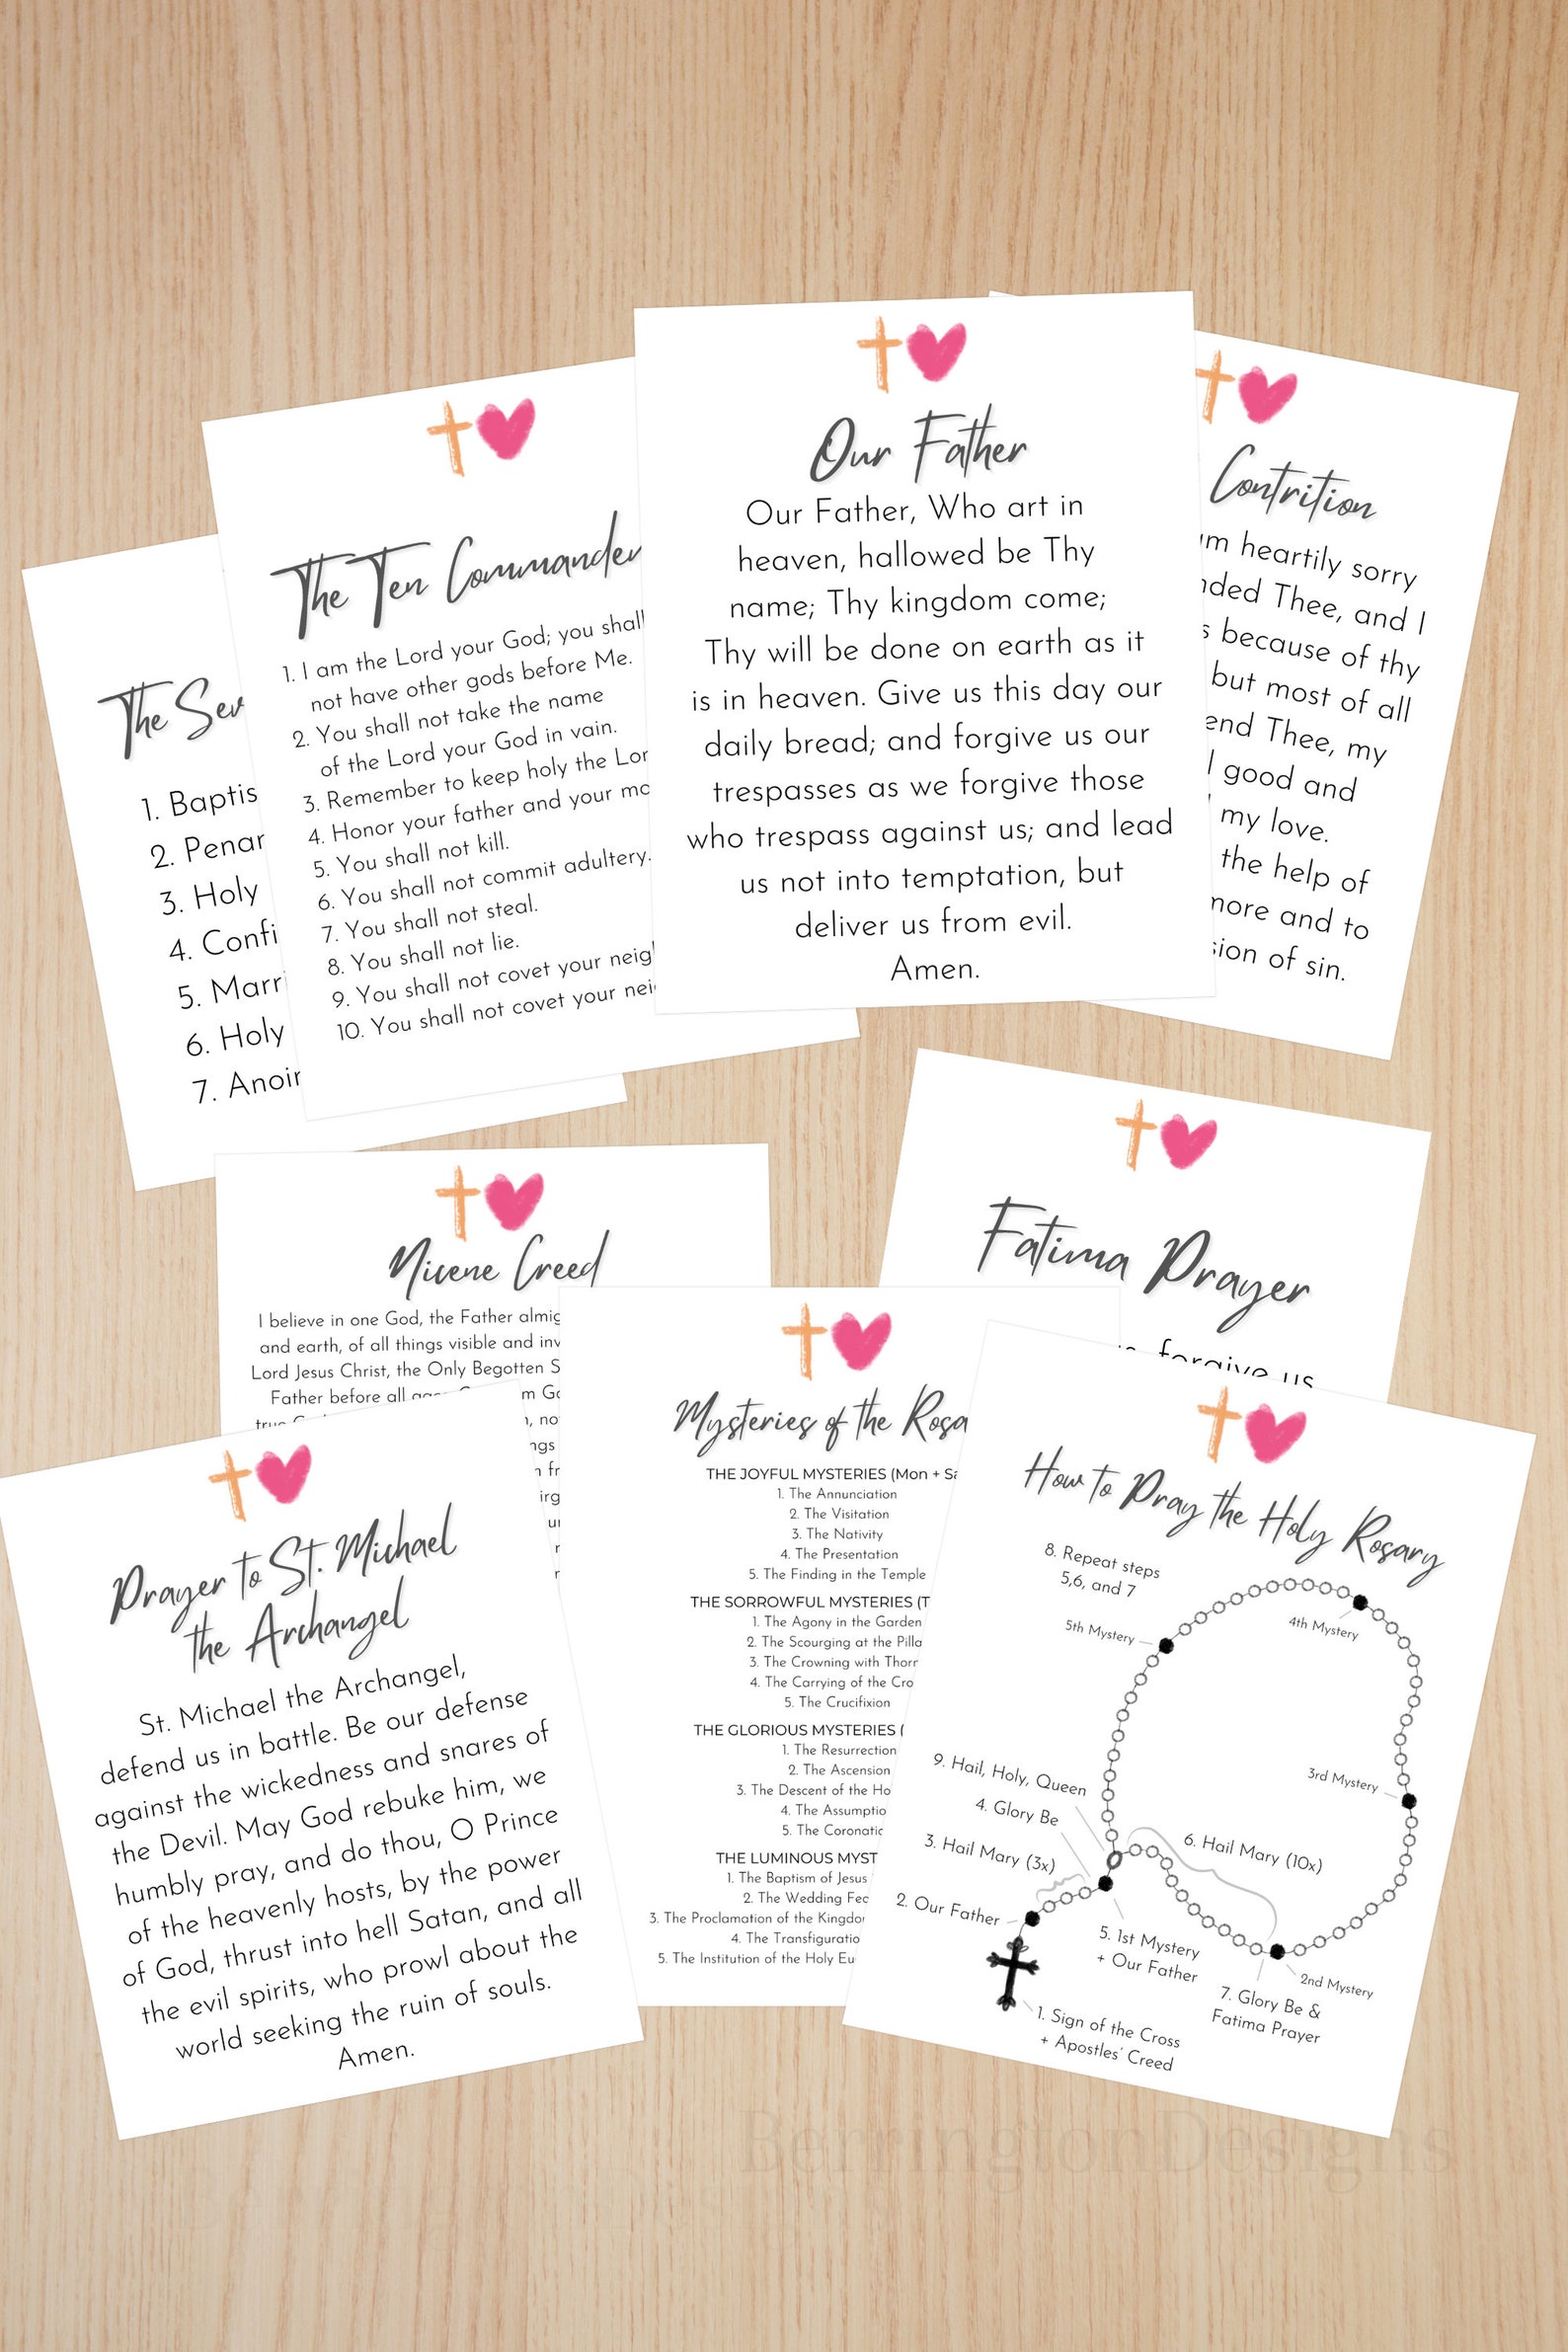 Our Father
Our Father, Who art in
heaven, hallowed be Thy
name; Thy kingdom come;
Thy will be done on earth as it
is in heaven. Give us this day our
daily bread; and forgive us our
trespasses as we forgive those
who trespass against us; and lead
us not into temptation, but
deliver us from evil.
Amen.
The Ten Commandm
1. I am the Lord your God; you shall
not have other gods before Me.
2. You shall not take the name
of the Lord your God in vain.
3. Remember to keep holy the Lor
4. Honor your father and your mo
5. You shall not kill.
6. You shall not commit adultery.
7. You shall not steal.
8. You shall not lie.
9. You shall not covet your neigh
10. You shall not covet your nei
The Sev
1. Baptis
2. Penan
3. Holy
4. Confi
5. Marri
6. Holy
7. Anoin
Contrition
am heartily sorry
nded Thee, and I
s because of thy
but most of all
end Thee, my
l good and
my love.
the help of
more and to
sion of sin.
Nicene Creed
I believe in one God, the Father almig
and earth, of all things visible and inv
Lord Jesus Christ, the Only Begotten S
Father before all
Fatima Prayer
forgive us
Prayer to St. Michael
the Archangel
St. Michael the Archangel,
defend us in battle. Be our defense
against the wickedness and snares of
the Devil. May God rebuke him, we
humbly pray, and do thou, O Prince
of the heavenly hosts, by the power
of God, thrust into hell Satan, and all
the evil spirits, who prowl about the
world seeking the ruin of souls.
Amen.
Mysteries of the Rosa
THE JOYFUL MYSTERIES (Mon + Sa
1. The Annunciation
2. The Visitation
3. The Nativity
4. The Presentation
5. The Finding in the Temple
THE SORROWFUL MYSTERIES (T
1. The Agony in the Garden
2. The Scourging at the Pilla
3. The Crowning with Thorn
4. The Carrying of the Cro
5. The Crucifixion
THE GLORIOUS MYSTERIES (
1. The Resurrection
2. The Ascension
3. The Descent of the Ho
4. The Assumptio
5. The Coronatio
THE LUMINOUS MYST
1. The Baptism of Jesus
2. The Wedding Fea
3. The Proclamation of the Kingdom
4. The Transfiguratio
5. The Institution of the Holy Eu
How to Pray the Holy Rosary
8. Repeat steps
5,6, and 7
5th Mystery
4th Mystery
3rd Mystery
9. Hail, Holy, Queen
4. Glory Be
3. Hail Mary (3x)
6. Hail Mary (10x)
2. Our Father
5. 1st Mystery
+ Our Father
2nd Mystery
7. Glory Be &
Fatima Prayer
1. Sign of the Cross
+ Apostles' Creed
BerringtonDesigns